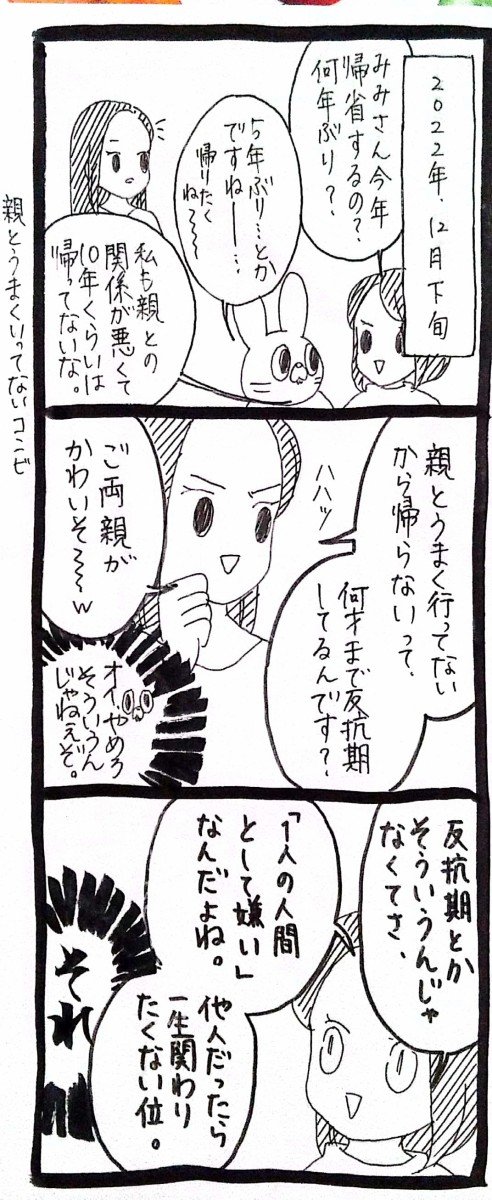 2022年、12月下旬
みみさん今年
帰省するの?
何年ぶり?
5年ぶり…とか
ですねー…
帰りたく
ね〜〜
私も親との
関係が悪くて
10年くらいは
帰ってないな。
親とうまくいってないコンビ
親とうまく行ってない
から帰らないって、
何才まで反抗期
してるんです?
ハハッ
ご両親が
かわいそ〜〜w
オイ、やめろ
そういうん
じゃねぇぞ。
反抗期とか
そういうんじゃ
なくてさ、
「1人の人間
として嫌い」
なんだよね。
他人だったら
一生関わり
たくない位。
それ